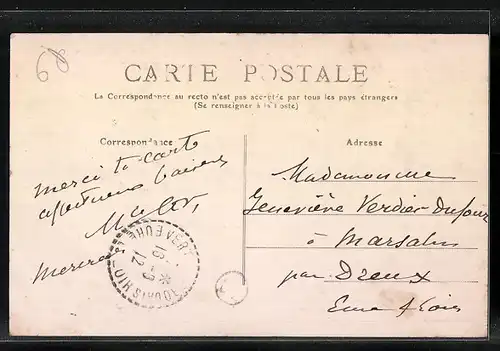 68
CARTE POSTALE
La Correspondance au recto n'est pas acceptée par tous les pays étrangers
(Se renseigner à la Poste)
Correspondance
Adresse
merci ta carte
affectueux baisers
Mademoiselle
Geneviève Verdier-Dufour
à Marsalin
par Dreux
Eure & Loir